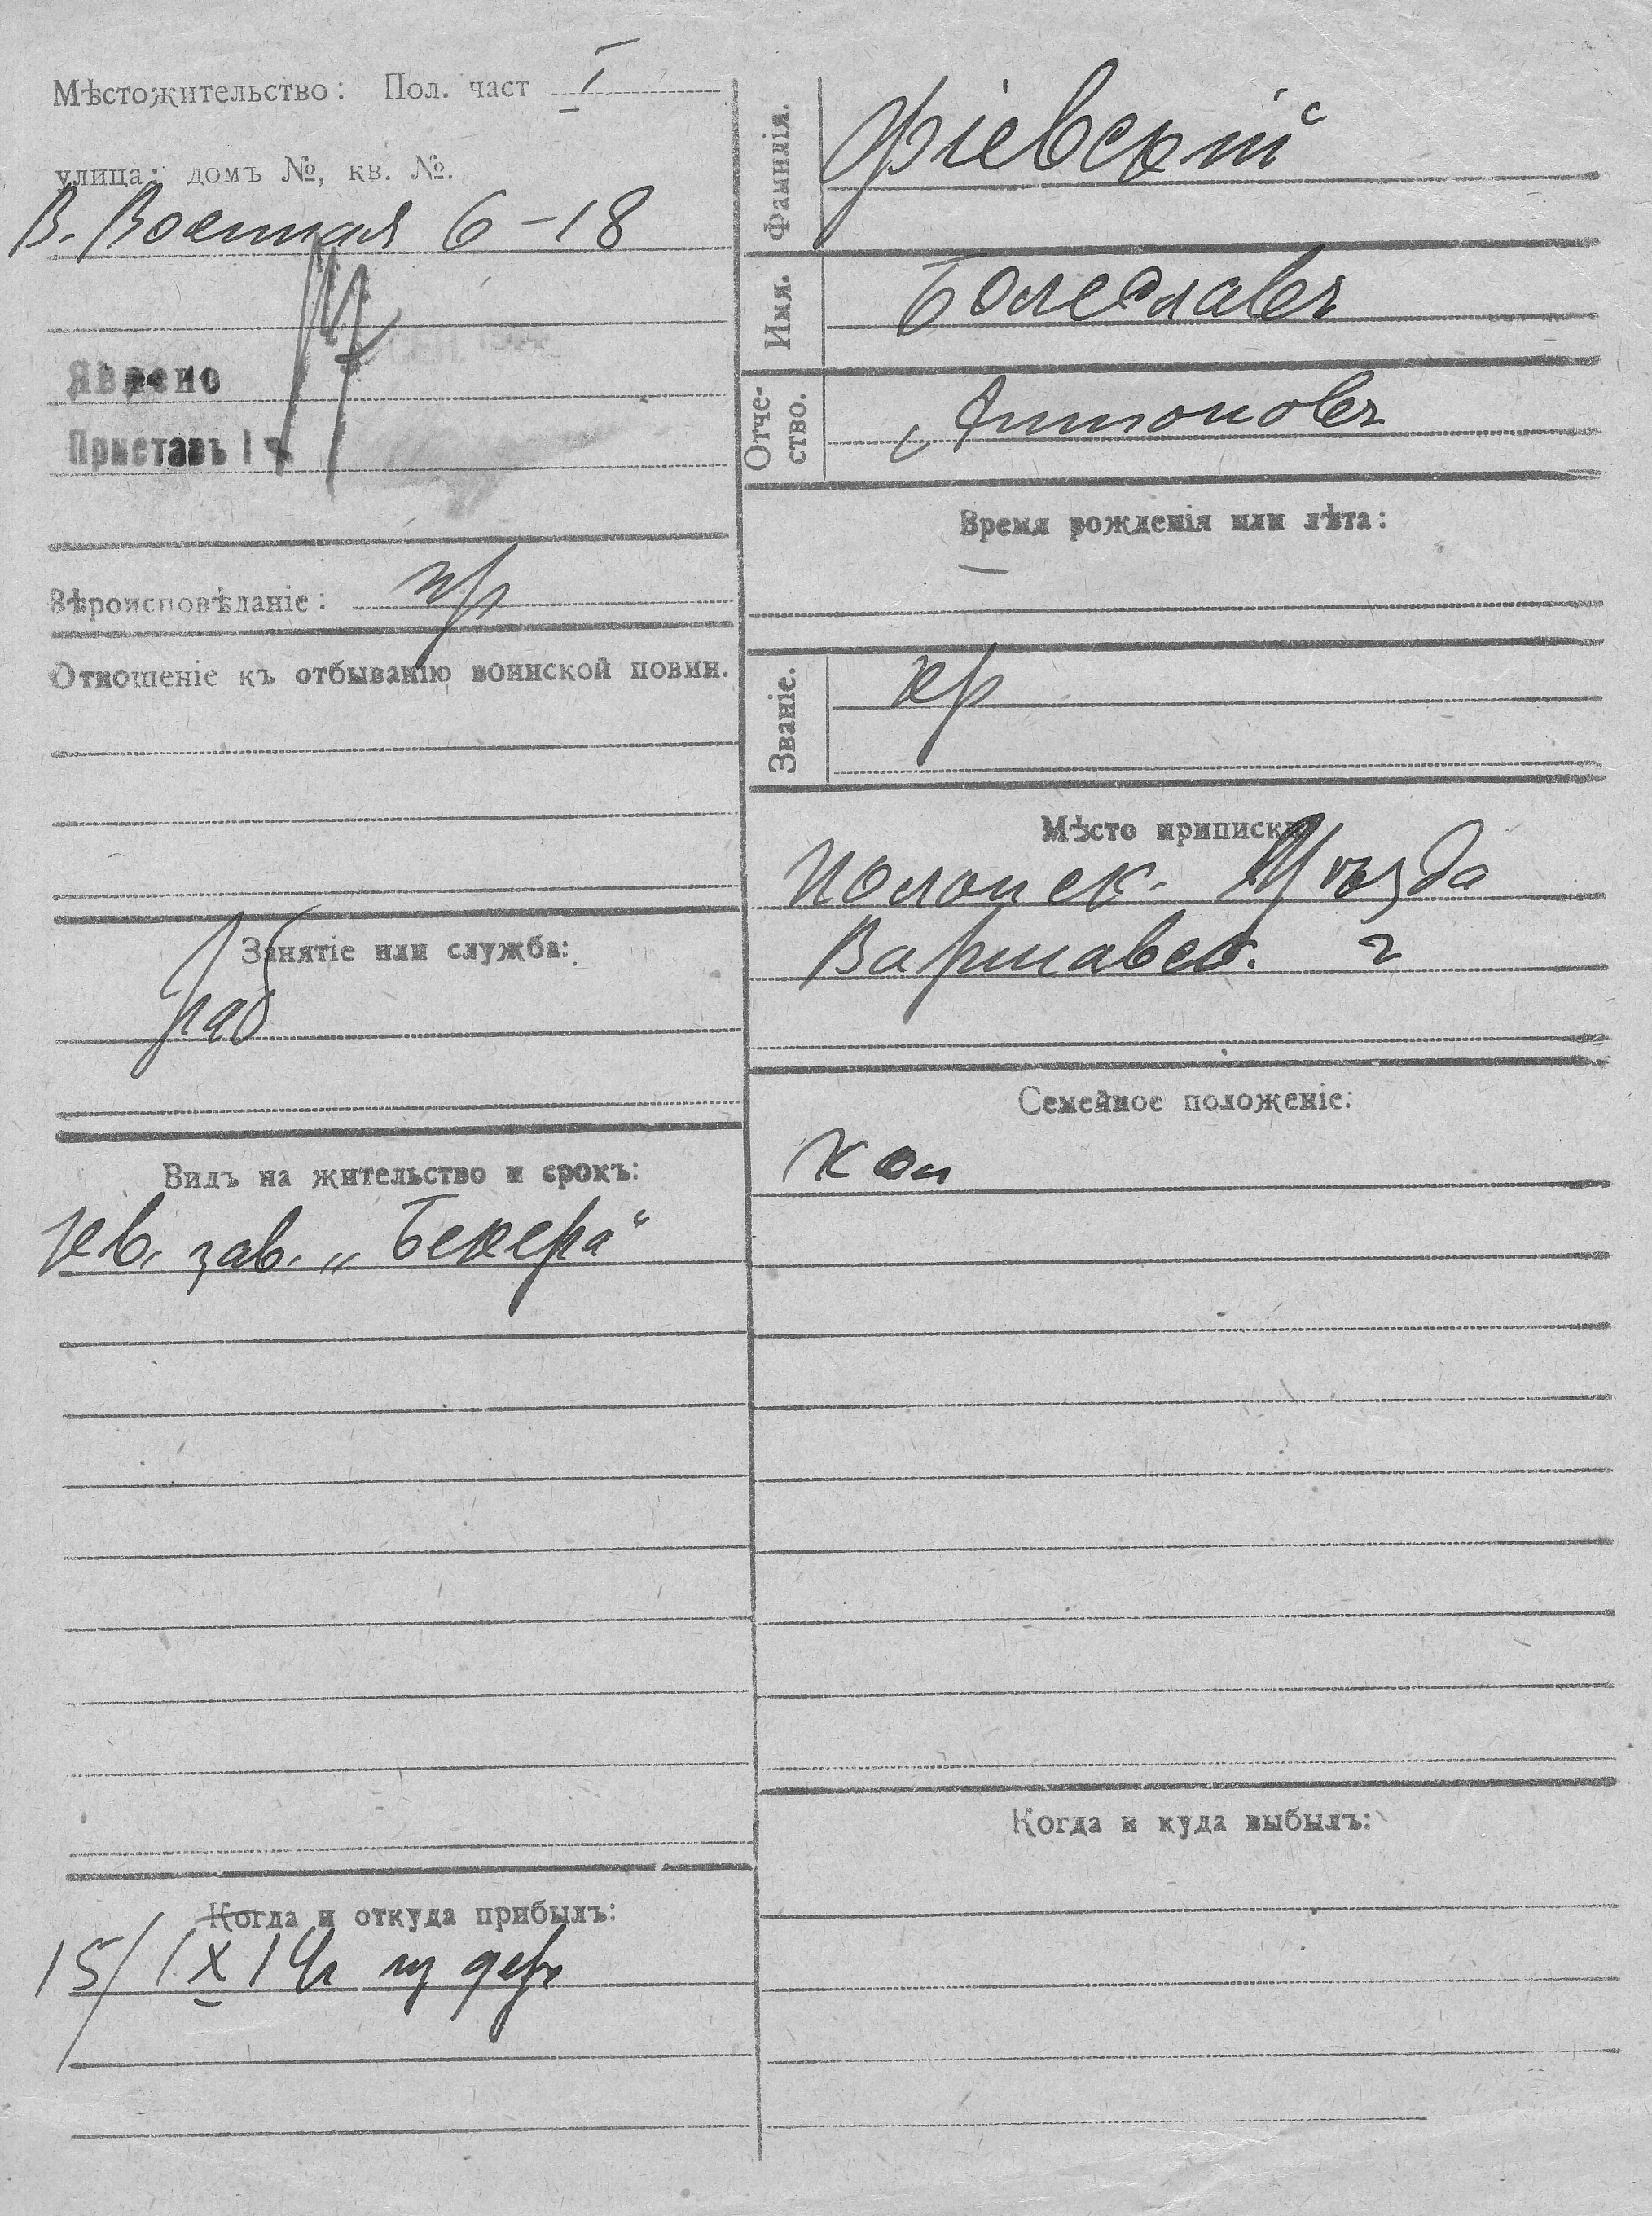 Мѣстожительство: Пол. част I
улица; домъ №, кв. №.
В. Военная 6-18
Явлено
Приставъ I ч
Вѣроисповѣданіе: пр
Отношеніе къ отбыванію воинской повин.
Занятіе или служба:
раб
Видъ на жительство и срокъ:
кв. зав. „Бекера“
Когда и откуда прибылъ:
15/IX 14г из дер
Фамилія.
Имя. Болеславъ
Отче-
ство. Антоновъ
Время рожденія или лѣта:
—
Званіе. кр
Мѣсто приписки
Полонск. Уѣзда
Варшавск. г
Семейное положеніе:
хол
Когда и куда выбылъ: